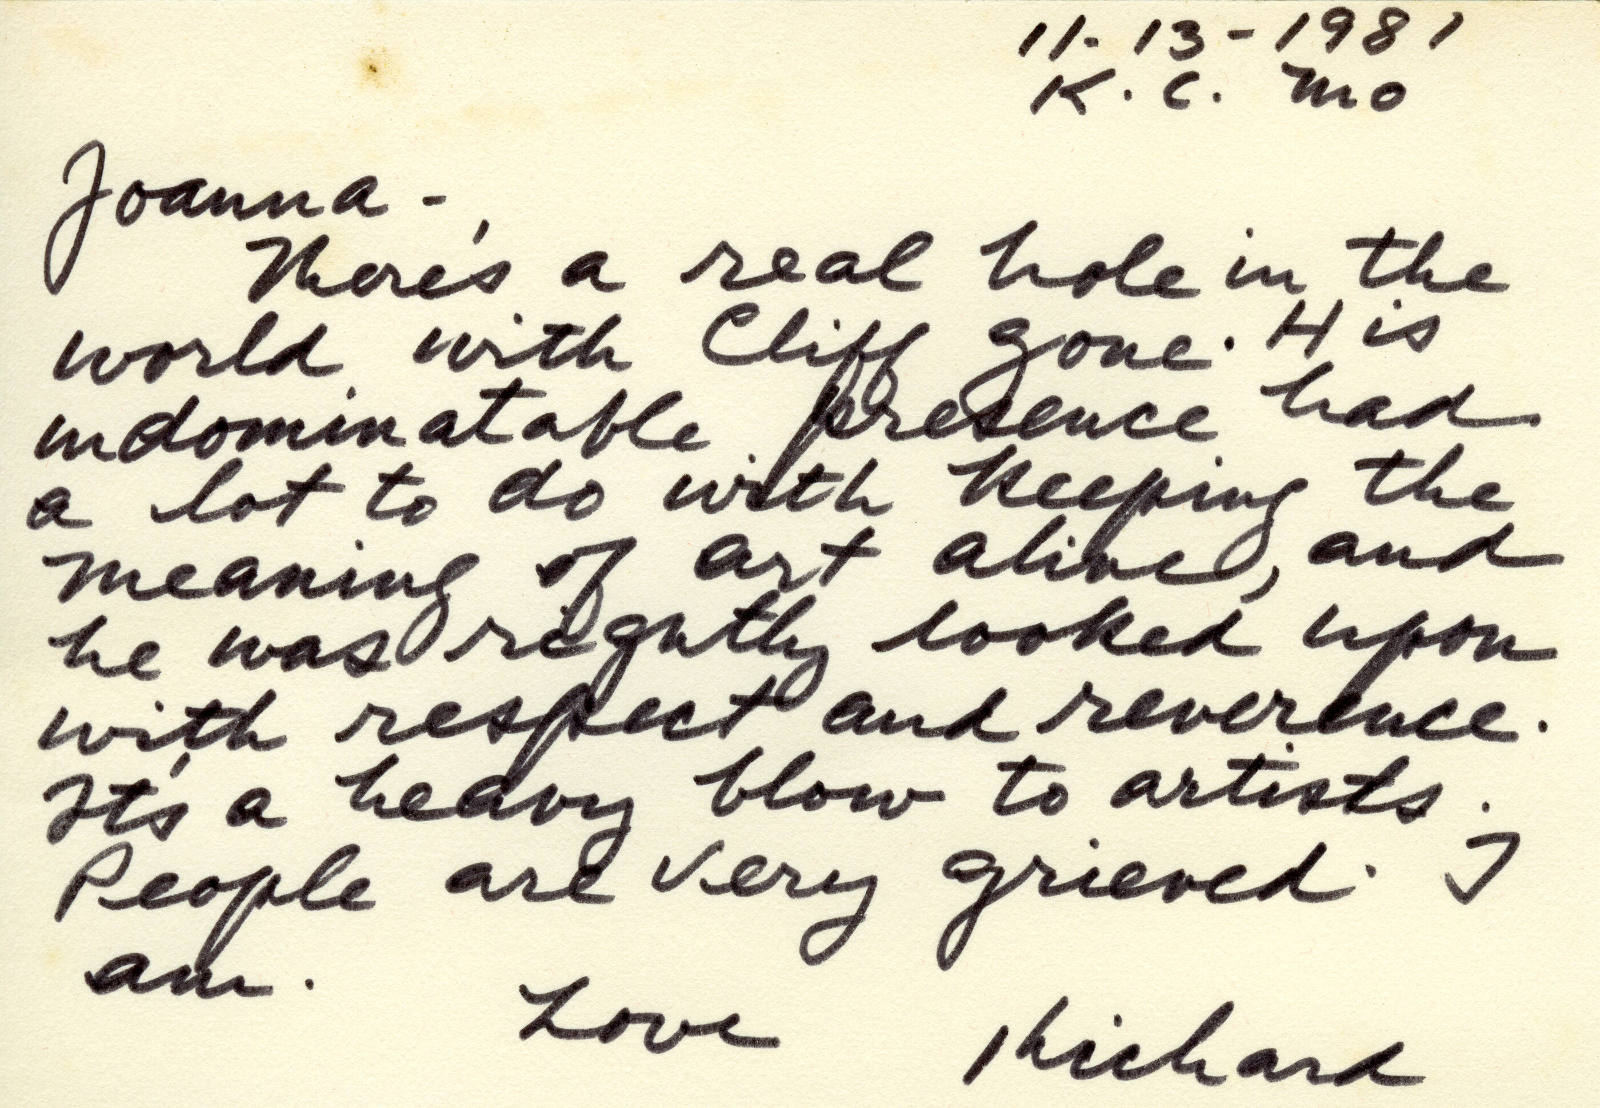 11-13-1981
K.C. Mo
Joanna-
There's a real hole in the
world with Cliff gone. His
indominatable presence had
a lot to do with keeping the
meaning of art alive, and
he was rightly looked upon
with respect and reverence.
It's a heavy blow to artists.
People are very grieved. I
am.
Love
Richard